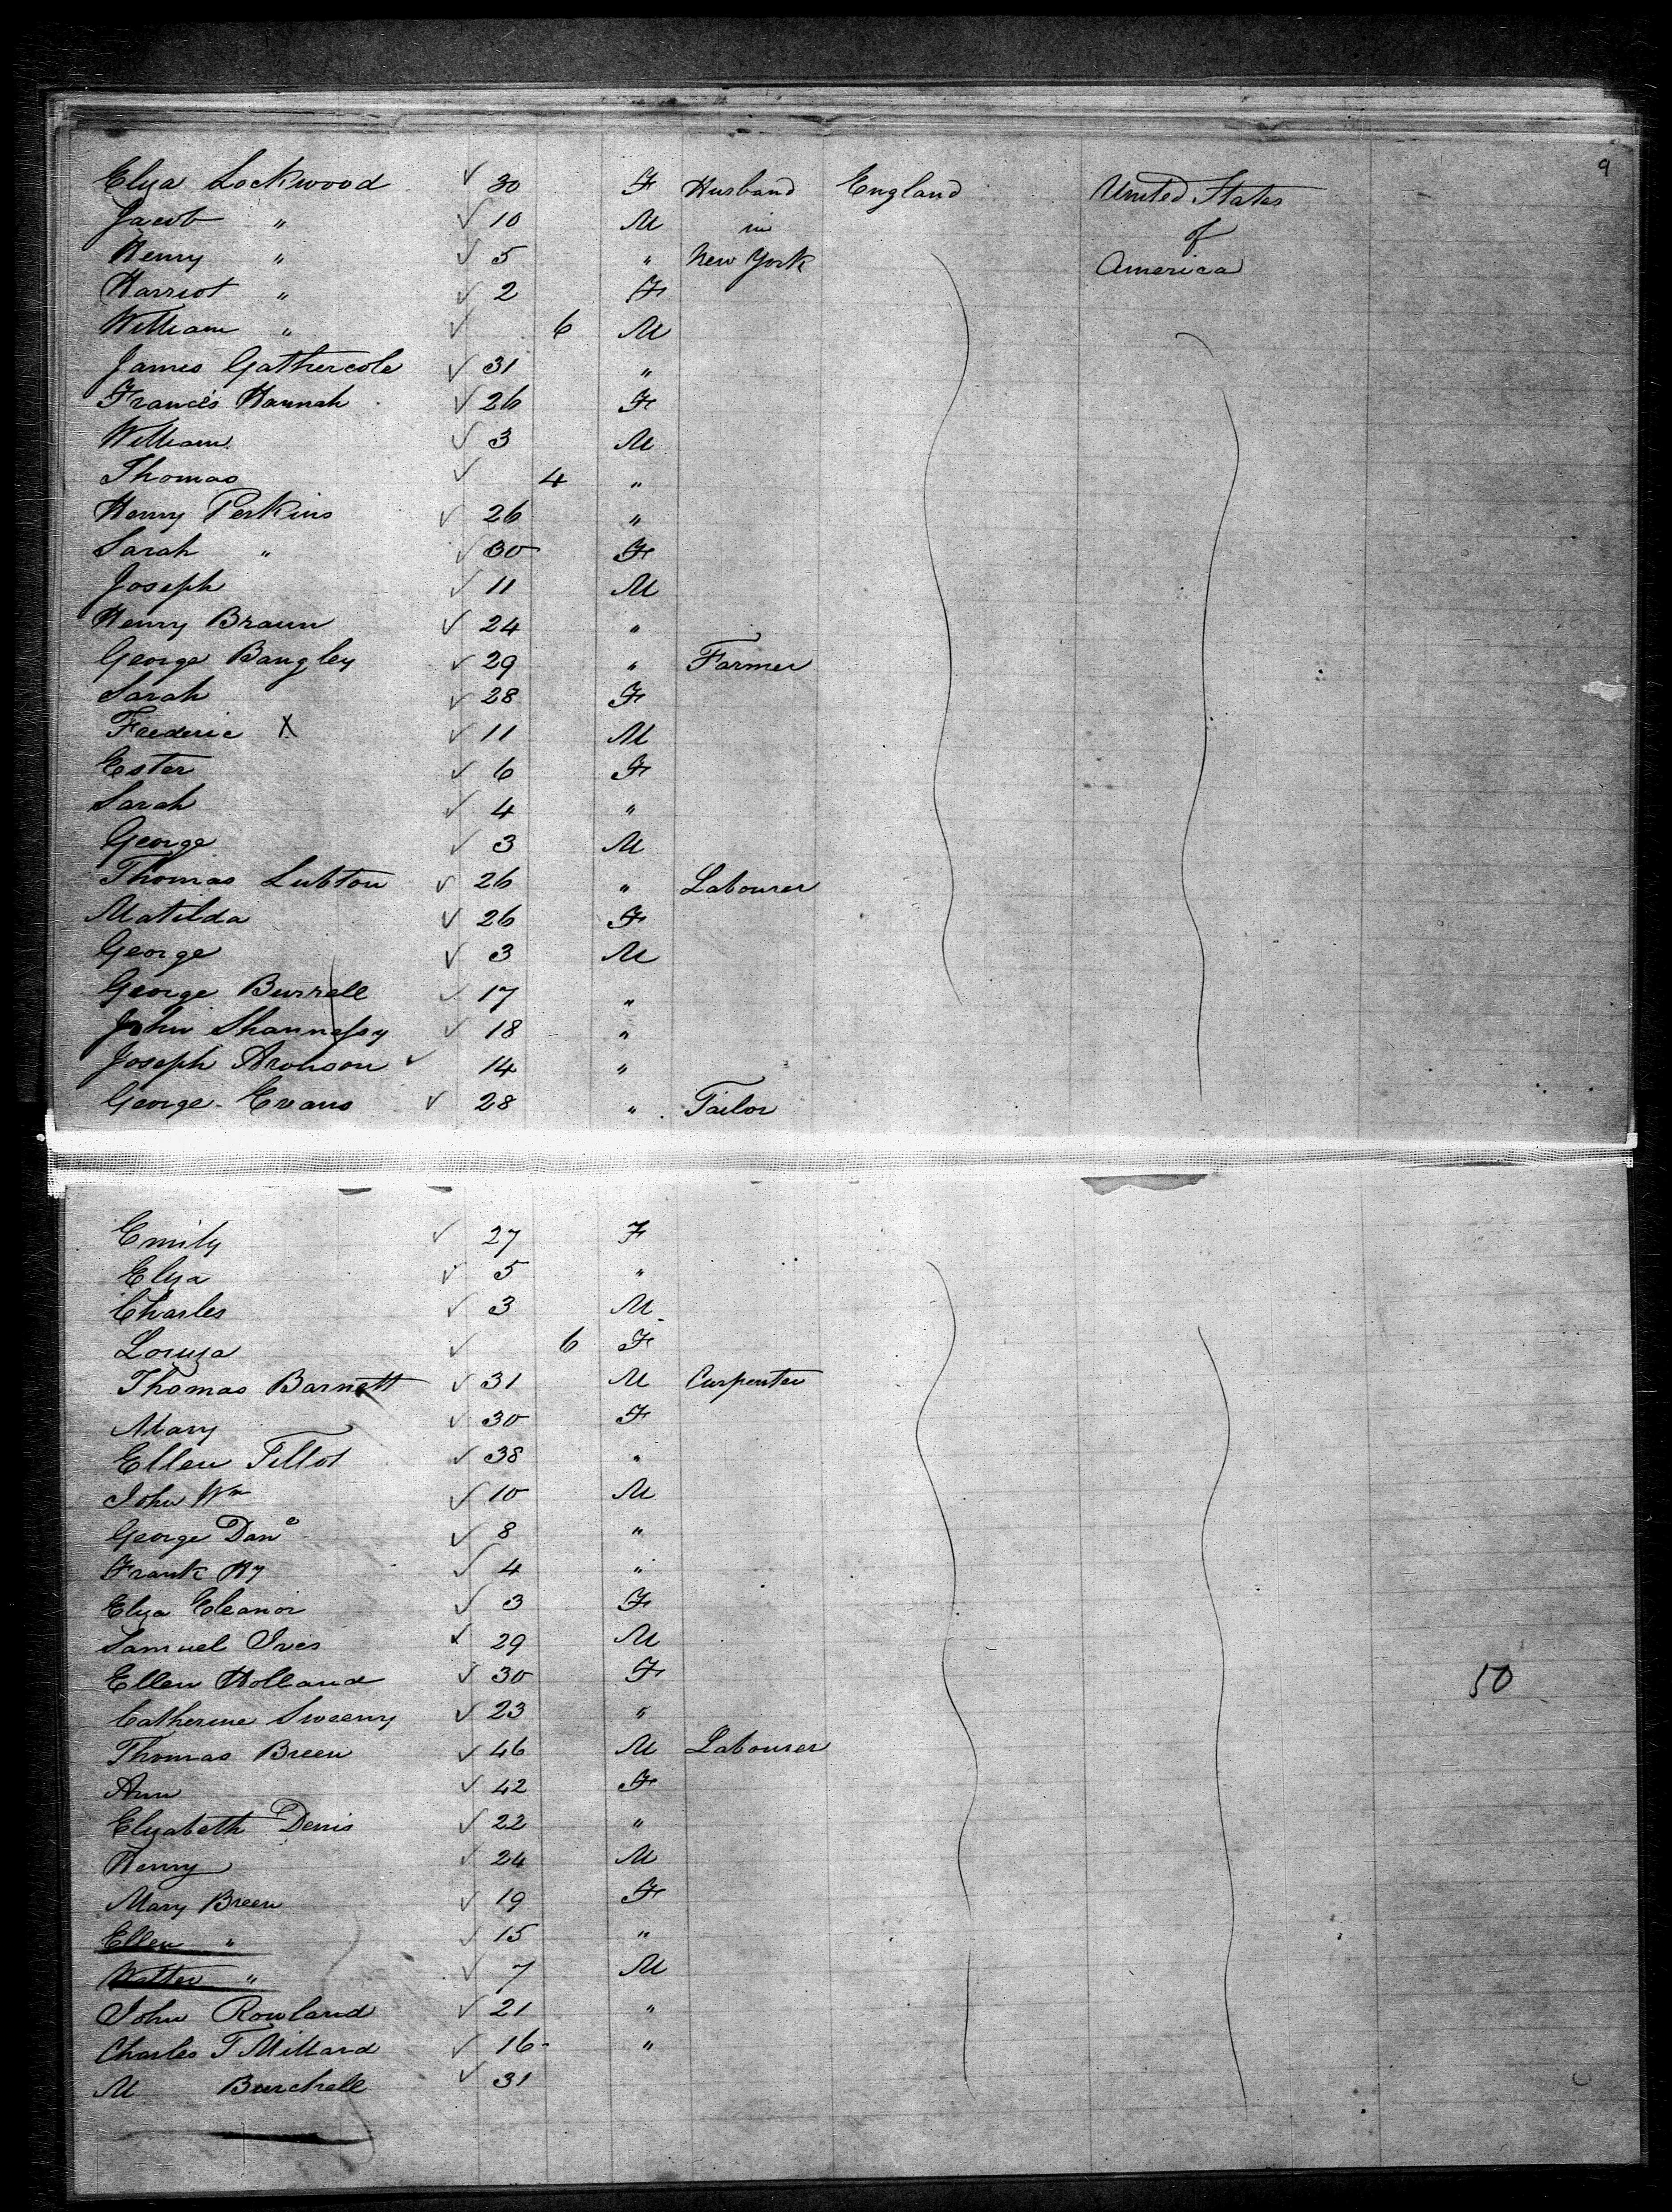 9
Eliza Lockwood ✓ 30 F Husband England United States
Jacob " ✓ 10 M in of
Henry " ✓ 5 " New York America
Harriot " ✓ 2 F
William " ✓ 6 M
James Gathercole ✓ 31 "
Francis Hannah ✓ 26 F
William ✓ 3 M
Thomas ✓ 4 "
Henry Perkins ✓ 26 "
Sarah " ✓ 30 F
Joseph ✓ 11 M
Henry Braun ✓ 24 "
George Bangley ✓ 29 " Farmer
Sarah ✓ 28 F
Frederic X ✓ 11 M
Ester ✓ 6 F
Sarah ✓ 4 "
George ✓ 3 M
Thomas Lubton ✓ 26 " Labourer
Matilda ✓ 26 F
George ✓ 3 M
George Burrell ✓ 17 "
John Shannessy ✓ 18 "
Joseph Aronson ✓ 14 "
George Evans ✓ 28 " Tailor
Emily ✓ 27 F
Eliza ✓ 5 "
Charles ✓ 3 M
Louisa ✓ 6 F
Thomas Barnett ✓ 31 M Carpenter
Mary ✓ 30 F
Ellen Tillot ✓ 38 "
John Wm ✓ 10 M
George Danl ✓ 8 "
Frank Hy ✓ 4 "
Eliza Eleanor ✓ 3 F
Samuel Ives ✓ 29 M
Ellen Holland ✓ 30 F 50
Catherine Sweeny ✓ 23 "
Thomas Breen ✓ 46 M Labourer
Ann ✓ 42 F
Elizabeth Denis ✓ 22 "
Henry ✓ 24 M
Mary Breen ✓ 19 F
Ellen " ✓ 15 "
Walter " ✓ 7 M
John Rowland ✓ 21 "
Charles T Millard ✓ 16 "
M Burchell ✓ 31